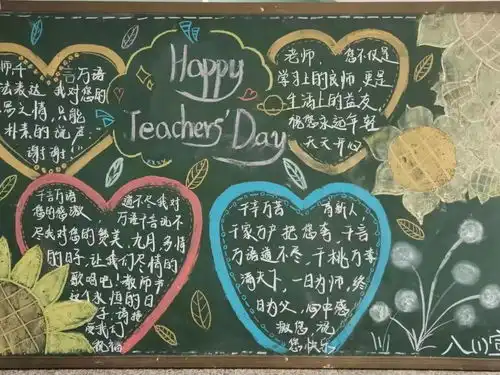 Happy
Teachers' Day
师千言万语
法表达我对您的
恩之情,只能
朴素的说声
谢谢!
老师,您不仅是
学习上的良师更是
生活上的益友
祝您永远年轻
天天开心
千言万语道不尽我对
您的感激万语千言说不
尽我对您的赞美,九月多情
的日子,让我们尽情的
歌唱吧!教师节
这个永恒的日
子,请接
受我们
祝福
千言万语有新人,
千家万户把您奉,千言
万语道不尽,千桃万李
满天下,一日为师,终
日为父,心中感
激您,说
您快乐